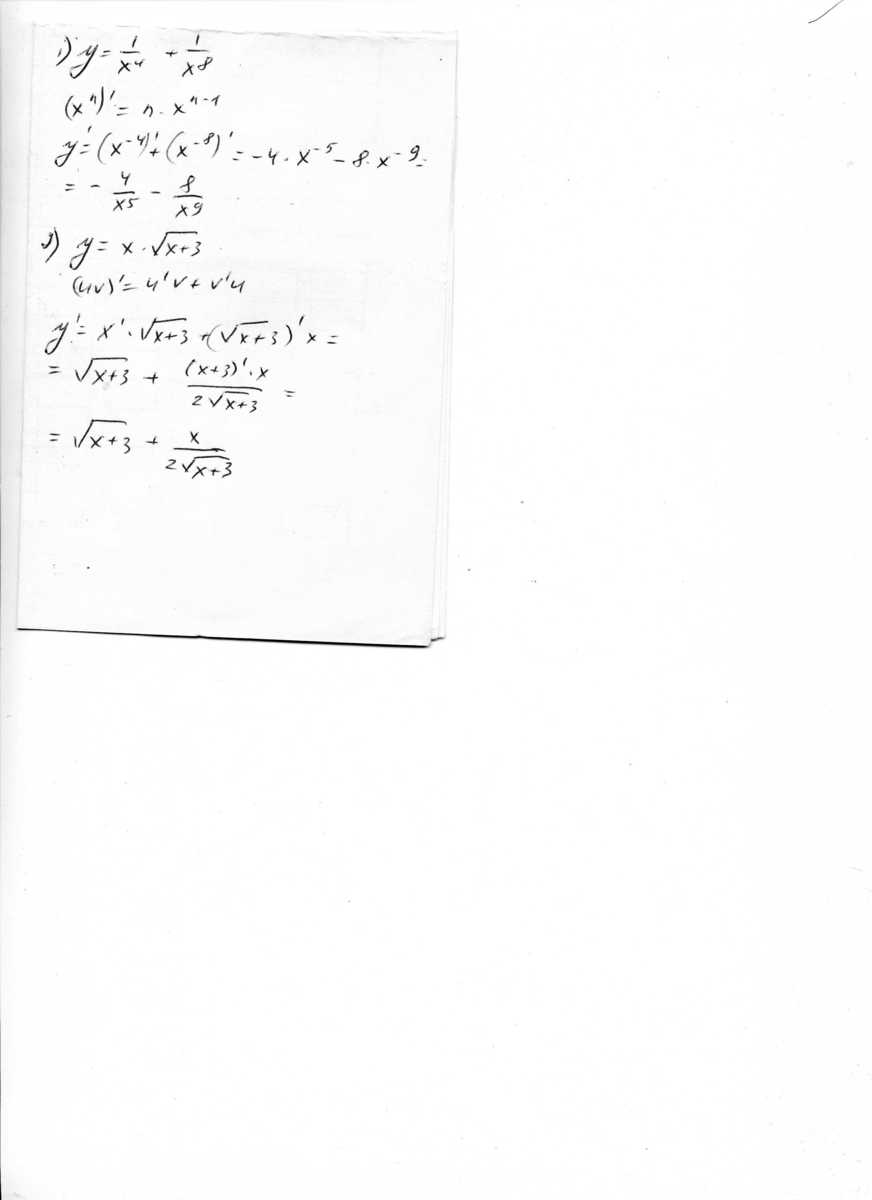 1) y = 1/x⁴ + 1/x⁸
(xⁿ)' = n · xⁿ⁻¹
y' = (x⁻⁴)' + (x⁻⁸)' = -4 · x⁻⁵ - 8 · x⁻⁹ =
= - 4/x⁵ - 8/x⁹
3) y = x · √(x+3)
(uv)' = u'v + v'u
y' = x' · √(x+3) + (√(x+3))' x =
= √(x+3) + (x+3)' · x / 2√(x+3) =
= √(x+3) + x / 2√(x+3)